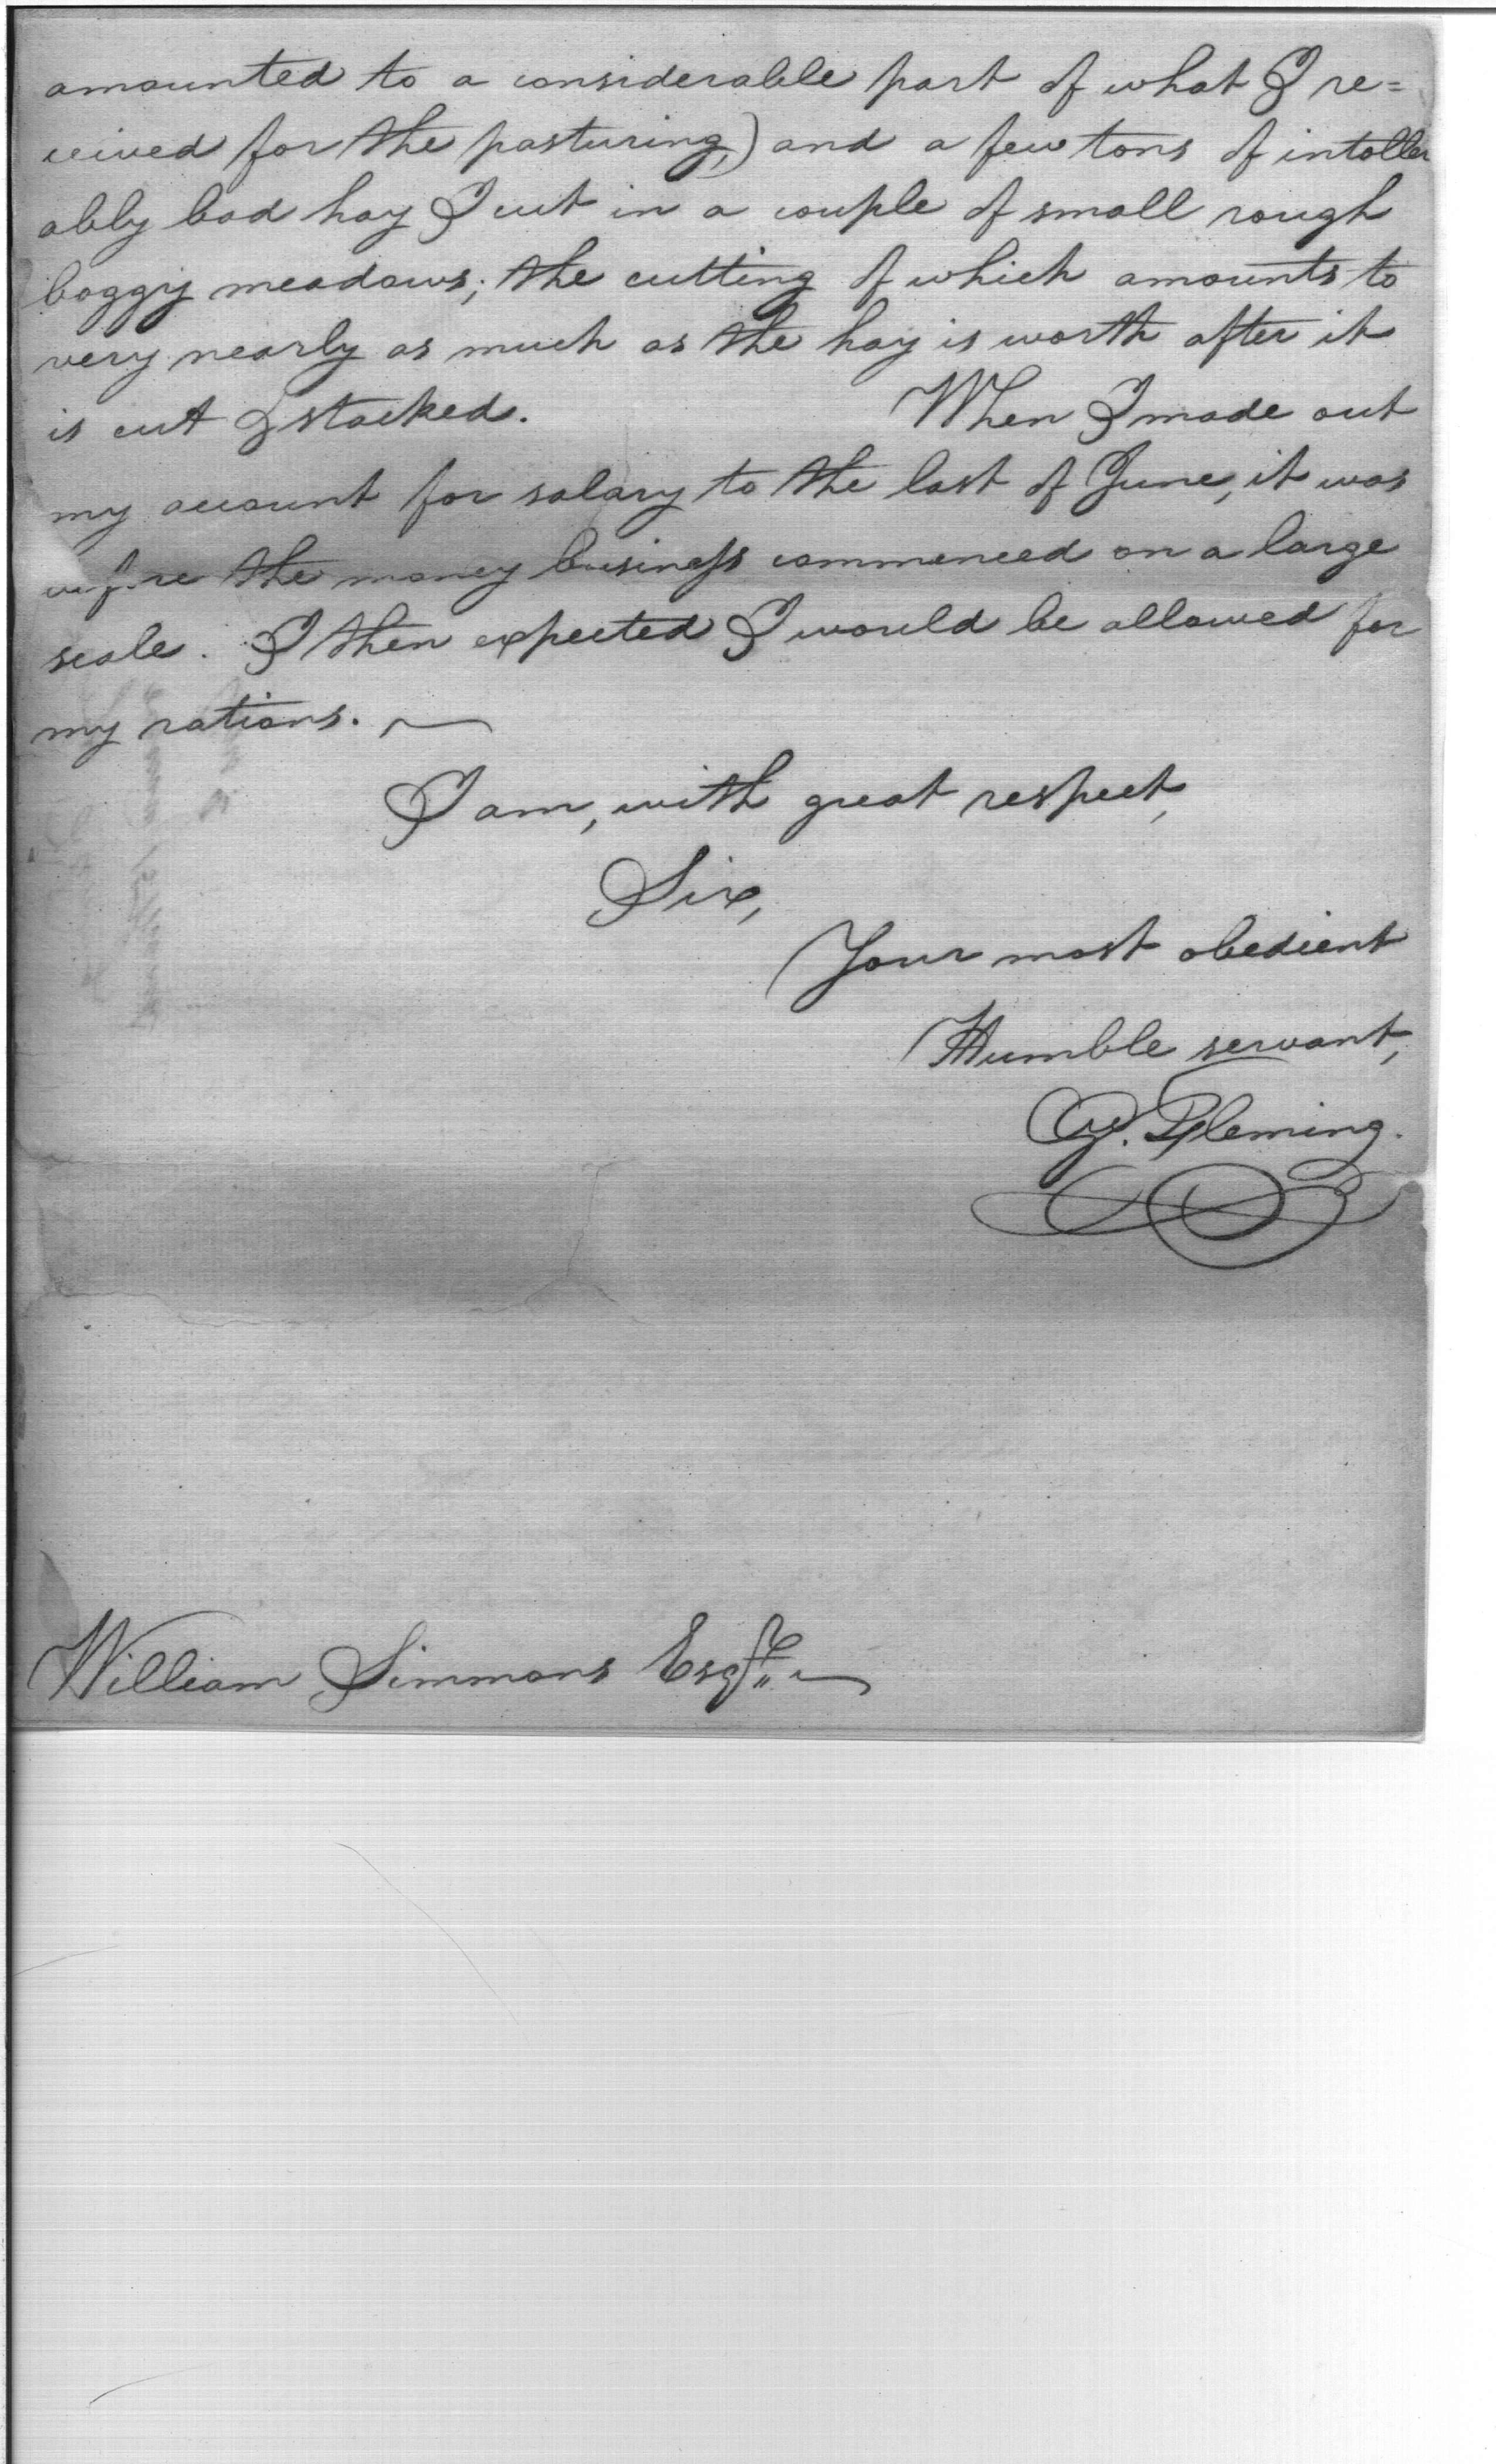 amounted to a considerable part of what I re=
ceived for the pasturing,) and a few tons of intoller
ably bad hay I cut in a couple of small rough
boggy meadows; the cutting of which amounts to
very nearly as much as the hay is worth after it
is cut & stacked. When I made out
my account for salary to the last of June, it was
before the money business commenced on a large
scale. I then expected I would be allowed for
my rations.
I am, with great respect,
Sir,
Your most obedient
Humble servant,
Fleming.
William Simmons Esqr.